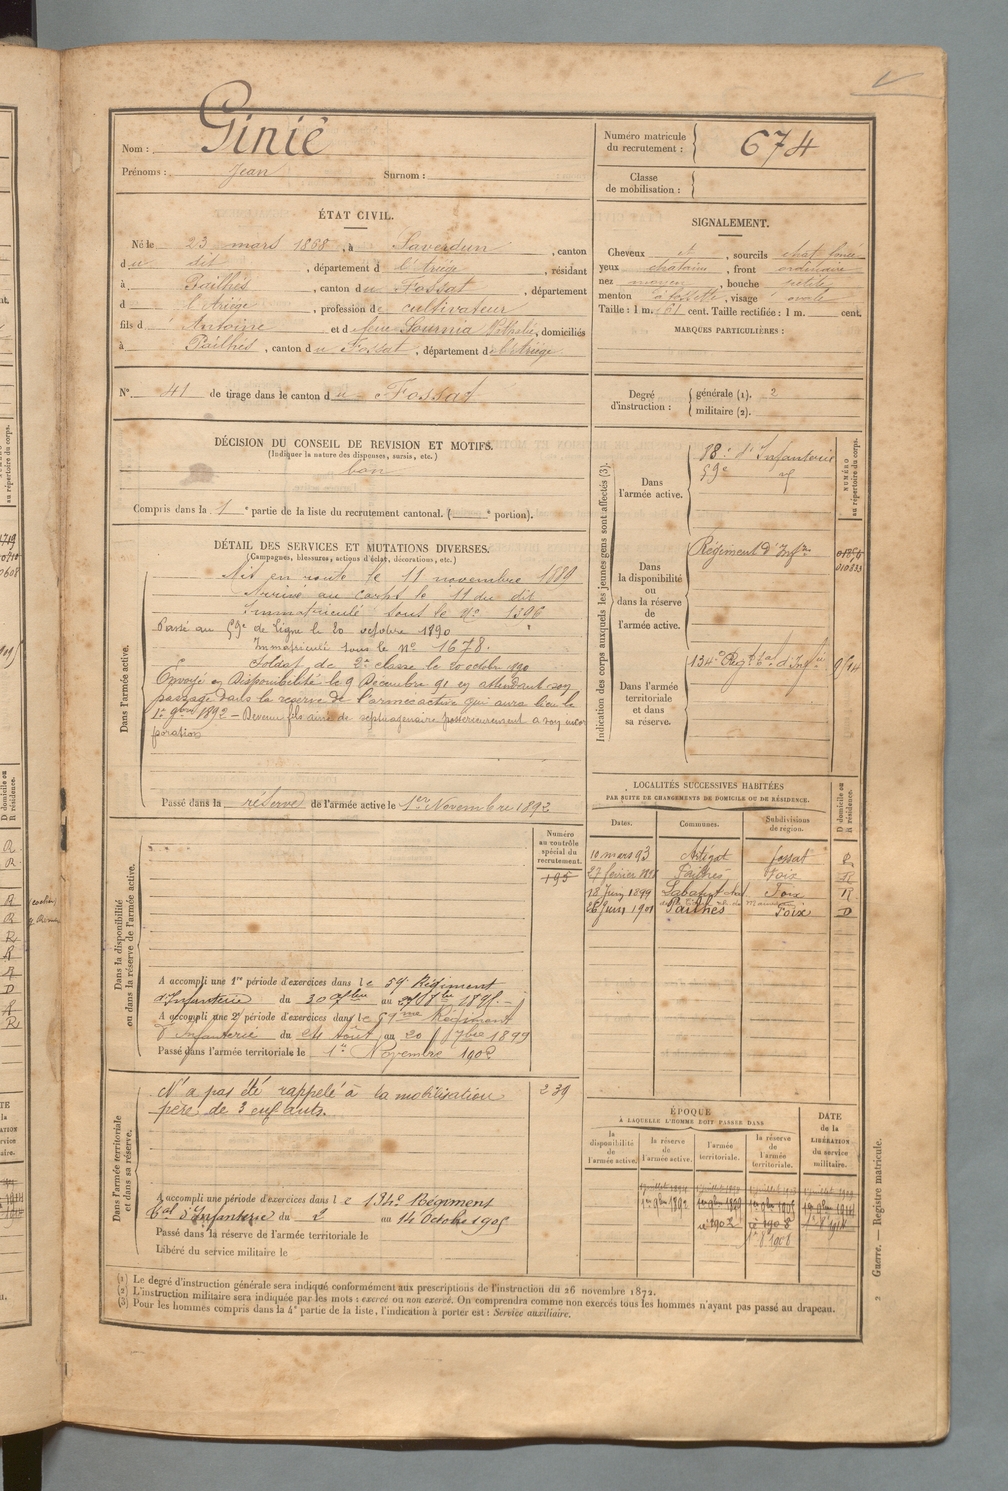 Nom : Ginié
Prénoms : Jean Surnom :
Numéro matricule du recrutement : 674
Classe de mobilisation :
ÉTAT CIVIL.
Né le 23 mars 1868, à Saverdun, canton
du dit, département d l'Ariège, résidant
à Pailhès, canton du Fossat, département
d l'Ariège, profession de cultivateur
fils d Antoine et d feue Nathalie, domiciliés
à Pailhès, canton du Fossat, département de l'Ariège
SIGNALEMENT.
Cheveux, sourcils chat. foncé
yeux chatains, front ordinaire
nez moyen, bouche petite
menton à fossette, visage ovale
Taille : 1 m. 61 cent. Taille rectifiée : 1 m. cent.
MARQUES PARTICULIÈRES :
N° 41 de tirage dans le canton du Fossat
Degré d'instruction :
générale (1). 2
militaire (2).
DÉCISION DU CONSEIL DE REVISION ET MOTIFS.
(Indiquer la nature des dispenses, sursis, etc.)
bon
Compris dans la 1e partie de la liste du recrutement cantonal. ( e portion).
DÉTAIL DES SERVICES ET MUTATIONS DIVERSES.
(Campagnes, blessures, actions d'éclat, décorations, etc.)
Dans l'armée active.
Mis en route le 11 novembre 1889
Arrivé au Corps le 11 du dit
Immatriculé sous le N° 1396
Passé au 59e de Ligne le 20 octobre 1890
Immatriculé sous le N° 1678.
Soldat de 2e classe le 20 octobr 1890
Envoyé en Disponibilité le 9 Décembre 91 en attendant son
passage dans la reserve de l'armée active qui aura lieu le
1er 9bre 1892 – Devenu fils ainé de septuagénaire postérieurement a son incor
poration
Passé dans la réserve de l'armée active le 1er Novembre 1892
Indication des corps auxquels les jeunes gens sont affectés (3).
NUMÉRO au répertoire du corps.
Dans l'armée active.
88e d'Infanterie
59e
Dans la disponibilité ou dans la réserve de l'armée active.
Régiment d'Infie
010833
Dans l'armée territoriale et dans sa réserve.
134e Régt tal d'Infie
LOCALITÉS SUCCESSIVES HABITÉES
PAR SUITE DE CHANGEMENTS DE DOMICILE OU DE RÉSIDENCE.
Dates. Communes. Subdivisions de région. D domicile ou R résidence.
10 mars 93 Artigat fossat R
27 février 1898 Pailhès Foix R
18 Juin 1899 Foix R
26 Juin 1901 Pailhès Foix D
Dans la disponibilité ou dans la réserve de l'armée active.
Numéro au contrôle spécial du recrutement.
195
A accompli une 1re période d'exercices dans le 59e Régiment
d'Infanterie du 30 au
A accompli une 2e période d'exercices dans le 59me Régiment
d'Infanterie du 24 Août au 20 7bre 1899
Passé dans l'armée territoriale le 1er Novembre 1902
Dans l'armée territoriale et dans sa réserve.
N'a pas été rappelé à la mobilisation
père de 3 enfants.
239
A accompli une période d'exercices dans le 134e Régiment
tal d'Infanterie du 2 au 14 Octobre 1905
Passé dans la réserve de l'armée territoriale le
Libéré du service militaire le
ÉPOQUE
À LAQUELLE L'HOMME DOIT PASSER DANS
la disponibilité de l'armée active.
la réserve de l'armée active.
l'armée territoriale.
la réserve de l'armée territoriale.
DATE de la LIBÉRATION du service militaire.
1er 9bre 1892 1er 9bre 1899
(1) Le degré d'instruction générale sera indiqué conformément aux prescriptions de l'instruction du 26 novembre 1872.
(2) L'instruction militaire sera indiquée par les mots : exercé ou non exercé. On comprendra comme non exercés tous les hommes n'ayant pas passé au drapeau.
(3) Pour les hommes compris dans la 4e partie de la liste, l'indication à porter est : Service auxiliaire.
Guerre. — Registre matricule.